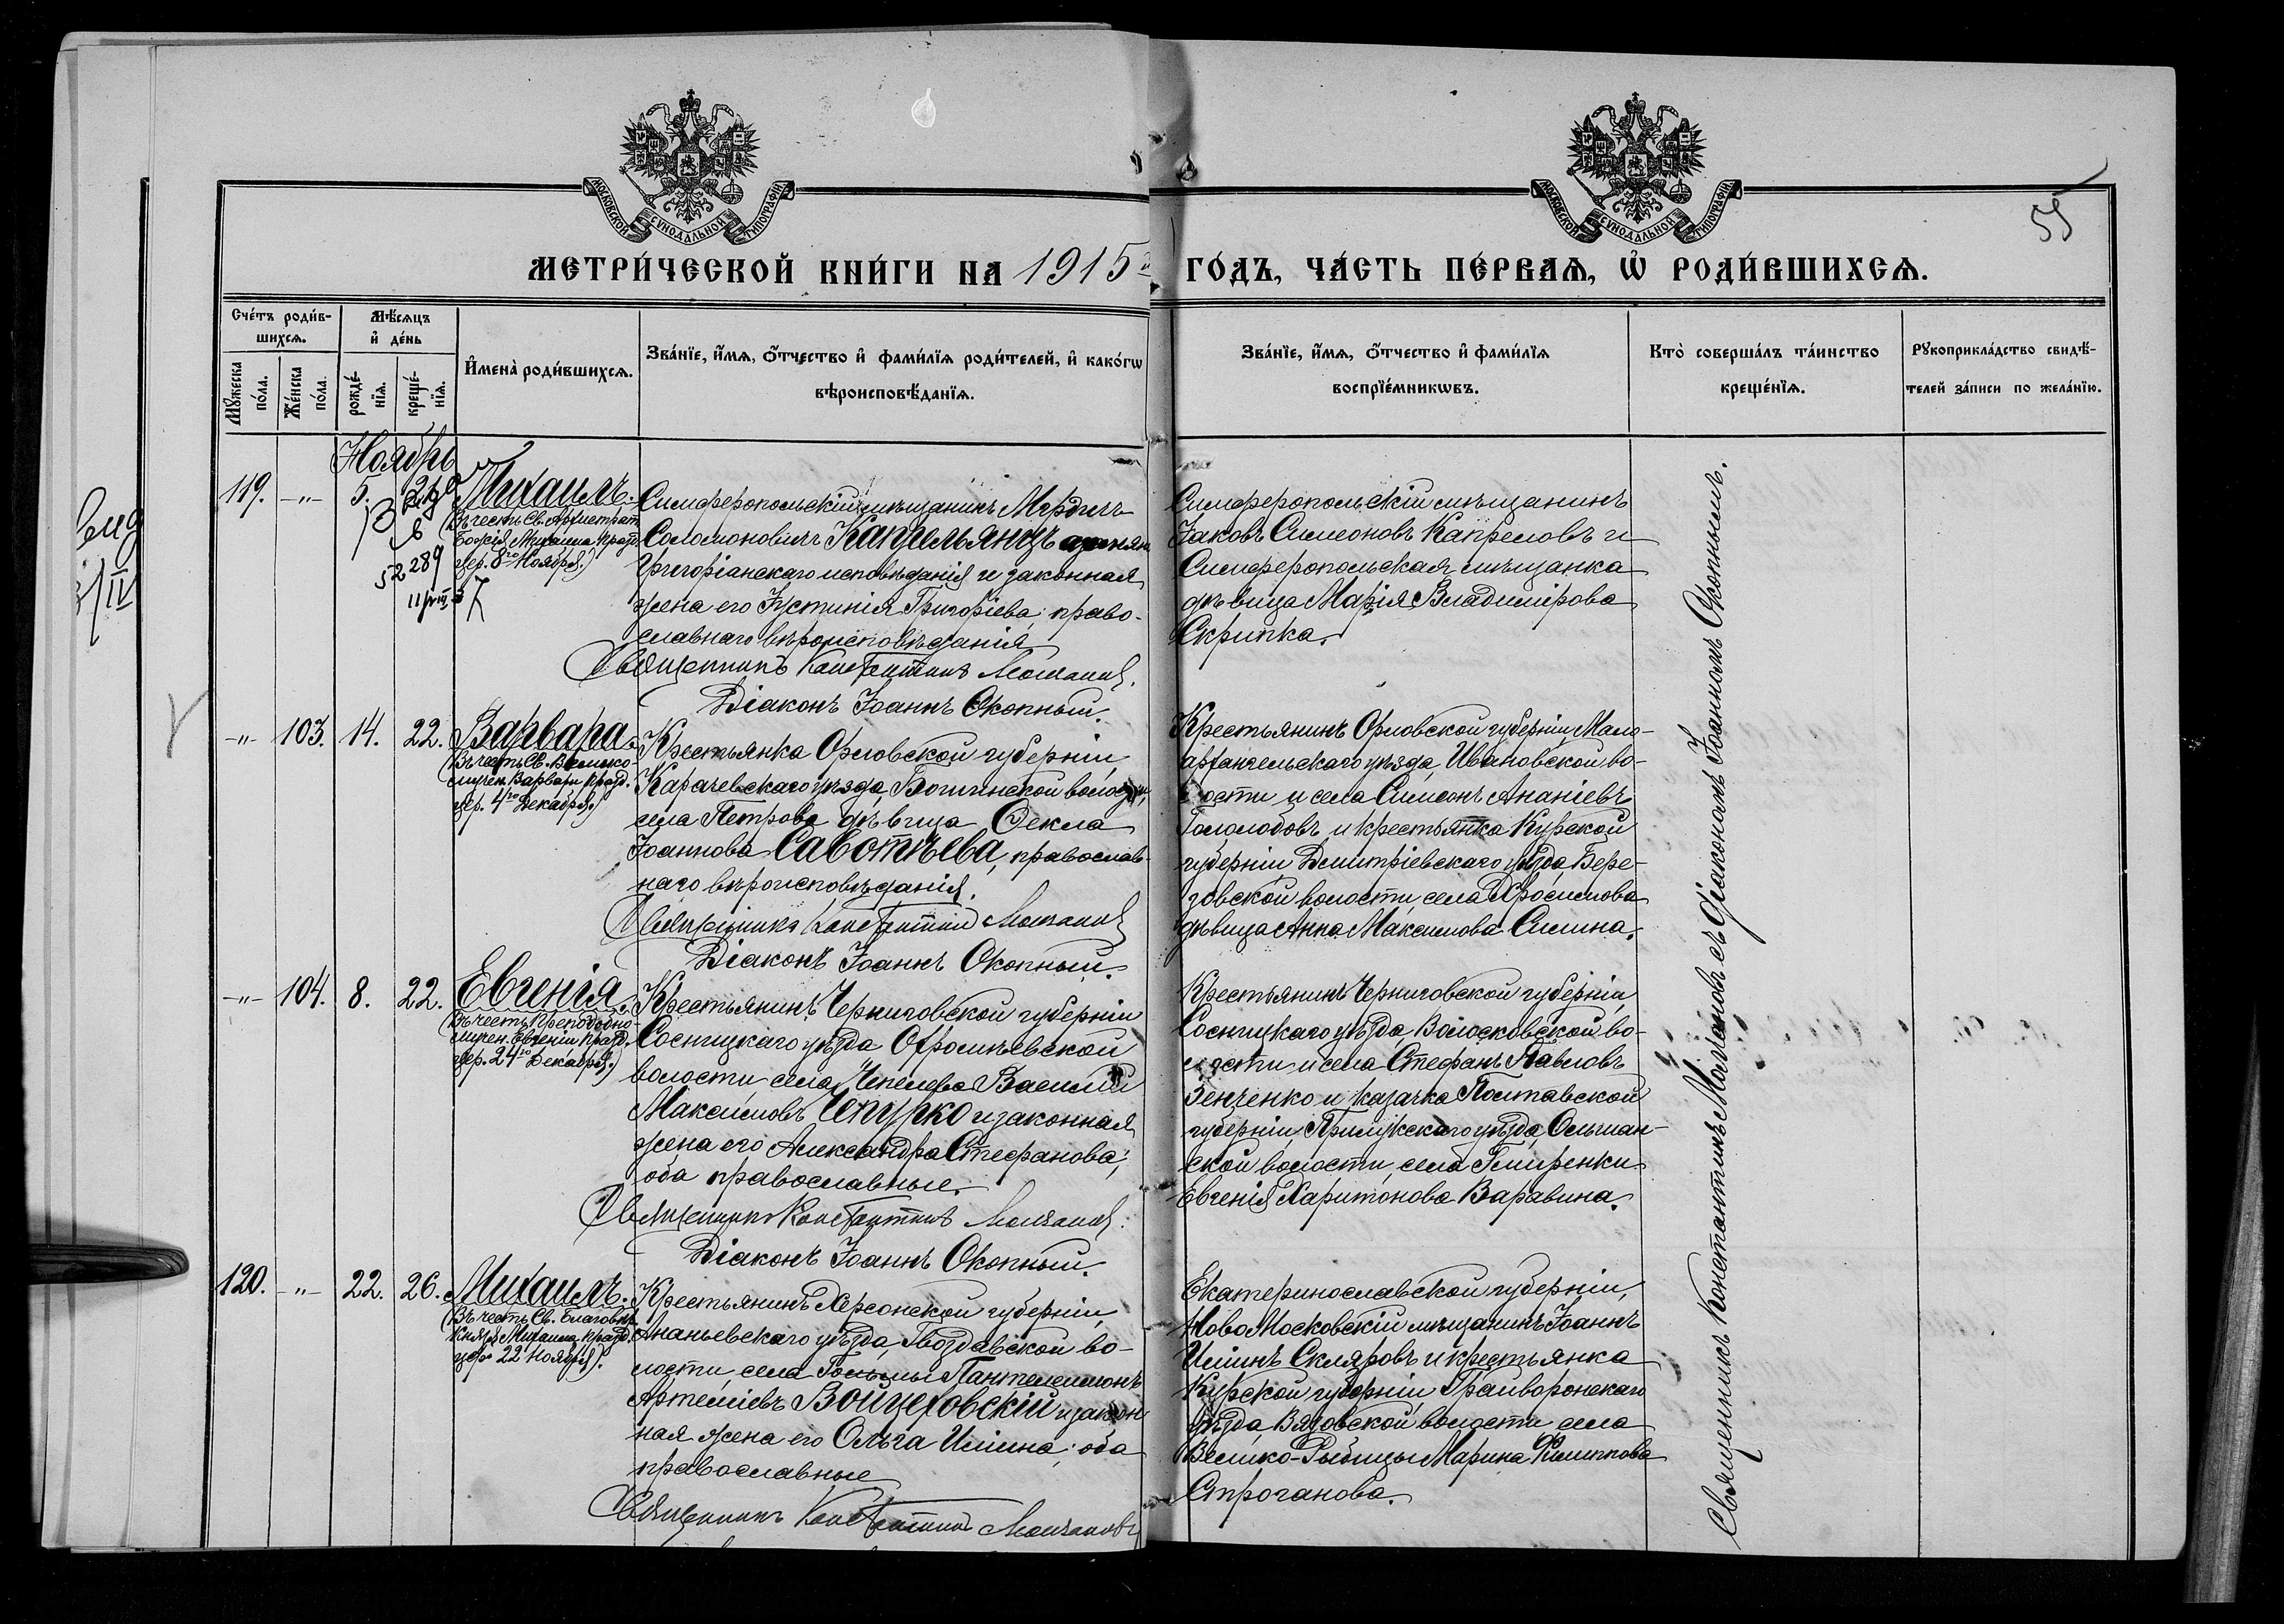 МОСКОВСКОЙ СѴНОДАЛЬНОЙ ТИПОГРАФІИ
МОСКОВСКОЙ СѴНОДАЛЬНОЙ ТИПОГРАФІИ
55
МЕТРИ́ЧЕСКОЙ КНИ́ГИ НА 1915й ГО́ДЪ, ЧА́СТЬ ПЕ́РВАѦ, Ѡ҆ РОДИ́ВШИХСѦ.
Сче́тъ роди́в-
шихсѧ.
Мѣ́сяцъ
и҆ де́нь
Мꙋ́жеска
по́ла.
Же́нска
по́ла.
рожде́-
нїѧ.
креще́-
нїѧ.
И҆мена̀ роди́вшихсѧ.
Зва́нїе, и҆́мѧ, ѻ҆́тчество и҆ фами́лїѧ роди́телей, и҆ како́гѡ
вѣроисповѣ́данїѧ.
Зва́нїе, и҆́мѧ, ѻ҆́тчество и҆ фами́лїѧ
воспрїе́мникѡвъ.
Кто̀ соверша́лъ та́инство
креще́нїѧ.
Рꙋкоприкла́дство свидѣ́-
телей за́писи по жела́нїю.
Ноябрь
119. -„- 5. Михаилъ.
(Въ честь Св. Архистрат.
Божія Михаила празд.
цер. 8го Ноября.)
289
Симферопольскій мѣщанинъ
Соломоновичъ Капрельянцъ
Григоріанскаго исповѣданія и законная
жена его Іустинія Григоріева, право-
славнаго вѣроисповѣданія
Священникъ Константинъ Молчановъ.
Діаконъ Іоаннъ Окопный.
Симферопольскій мѣщанинъ
Іаковъ Симеоновъ Капреловъ и
Симферопольская мѣщанка
дѣвица Марія Владимірова
Скрипка.
-„- 103. 14. 22. Варвара.
(Въ честь Св. Велико-
мучен. Варвары празд.
цер. 4го Декабря.)
Крестьянка Орловской губерніи,
Карачевскаго уѣзда, волости,
села Петрова дѣвица Ѳекла
Іоаннова Савотѣева, православ-
наго вѣроисповѣданія.
Священникъ Константинъ Молчановъ
Діаконъ Іоаннъ Окопный.
Крестьянинъ Орловской губерніи, Мало-
архангельскаго уѣзда, Ивановской во-
лости и села Симеонъ Ананіевъ
Гололобовъ и крестьянка Курской
губерніи, Дмитріевскаго уѣзда, Бере-
зовской волости, села
дѣвица Анна Максимова Силина.
-„- 104. 8. 22. Евгенія.
(Въ честь Преподобно-
мучен. Евгеніи празд.
цер. 24го Декабря.)
Крестьянинъ Черниговской губерніи
Сосницкаго уѣзда
волости села Чепелева Василій
Максимовъ Чепурко и законная
жена его Александра Стефанова;
оба православные.
Священникъ Константинъ Молчановъ.
Діаконъ Іоаннъ Окопный.
Крестьянинъ Черниговской губерніи,
Сосницкаго уѣзда, Волосковской во-
лости и села Стефанъ Павловъ
Зенченко и казачка Полтавской
губерніи, Прилукскаго уѣзда, Ольшан-
ской волости, села Гмиренки
Евгенія Харитонова Варавина.
120. -„- 22. 26. Михаилъ.
(Въ честь Св. Благовѣр.
Князя Михаила празд.
цер. 22 Ноября).
Крестьянинъ Херсонской губерніи,
Ананьевскаго уѣзда, Гвоздавской во-
лости, села Пантелеимонъ
Артеміевъ Войцеховскій и закон-
ная жена его Ольга Ильина; оба
православные
Священникъ Константинъ Молчановъ
Екатеринославской губерніи,
Ново Московскій мѣщанинъ Іоаннъ
Ильинъ Скляровъ и крестьянка
Курской губерніи, Грайворонскаго
уѣзда, Вязовской волости села
Велико-Рыбицы Марина Филиппова
Строганова.
Священникъ Константинъ Молчановъ съ діакономъ Іоанномъ Окопнымъ.